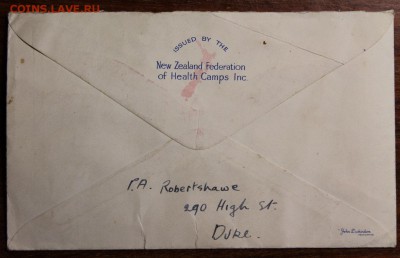 COINS.LAVE.RU
ISSUED BY THE
New Zealand Federation
of Health Camps Inc.
P.A. Robertshawe
290 High St.